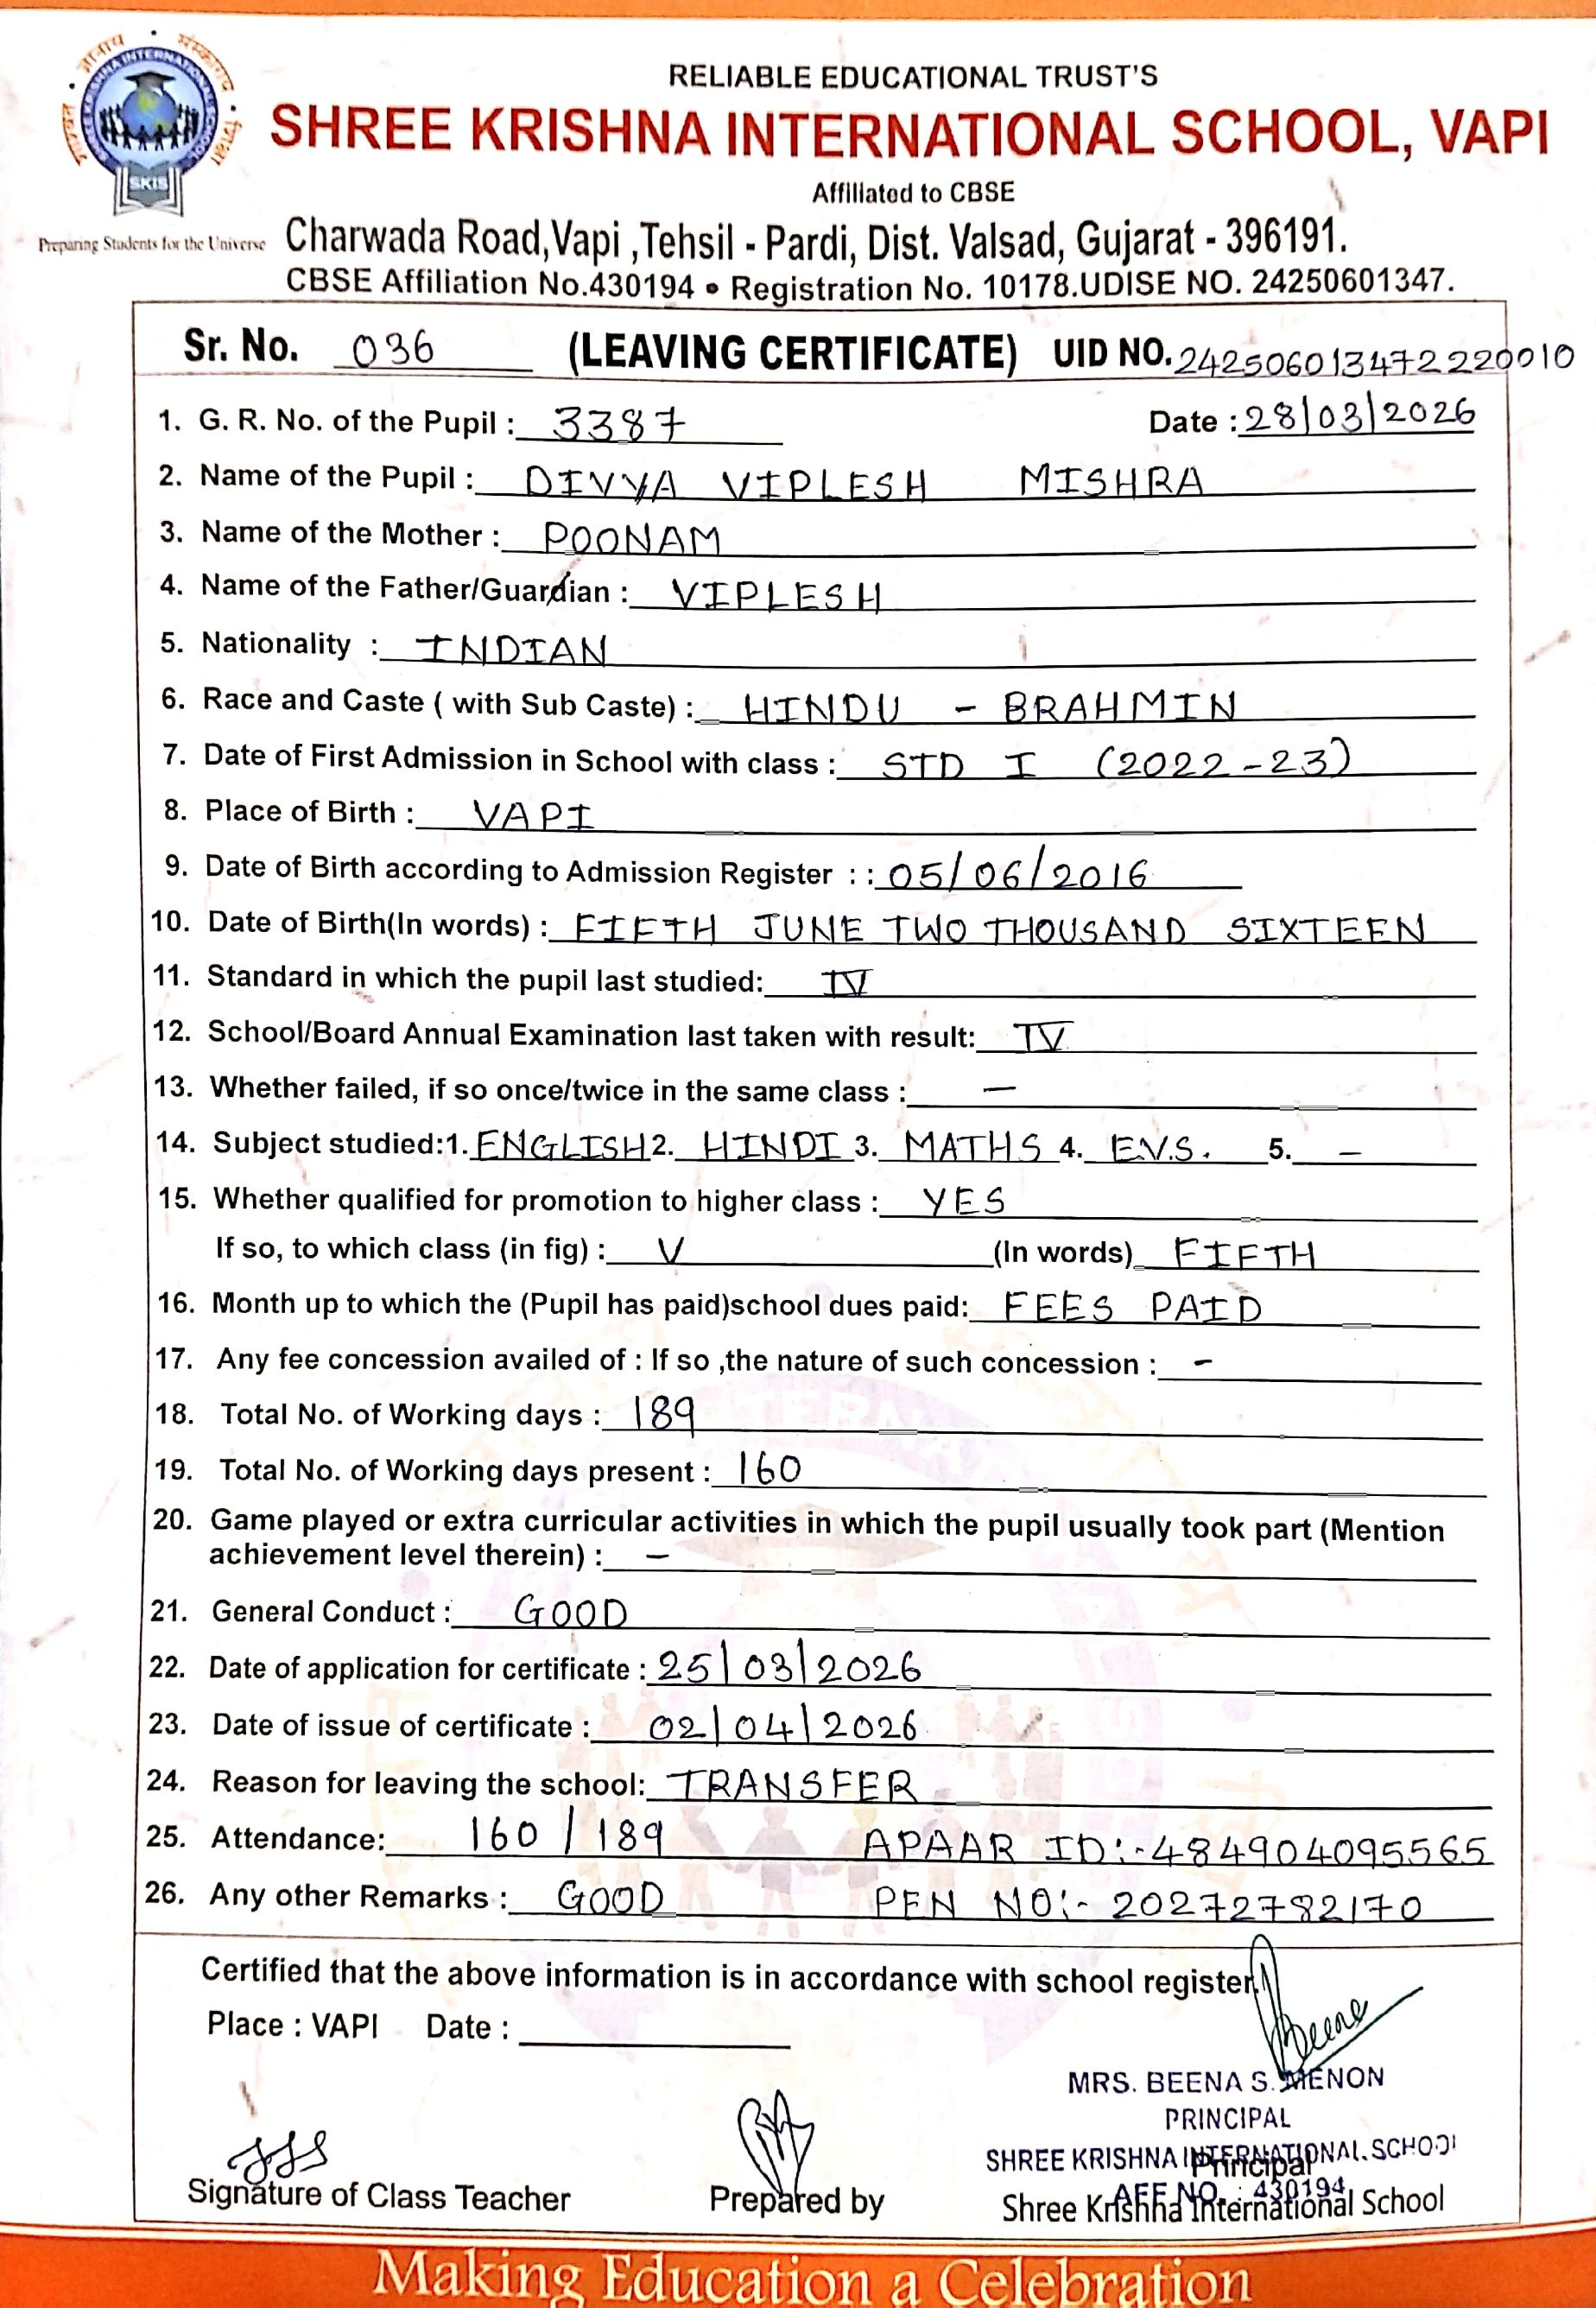 RELIABLE EDUCATIONAL TRUST'S
SHREE KRISHNA INTERNATIONAL SCHOOL, VAPI
Affiliated to CBSE
SKIS
Preparing Students for the Universe
Charwada Road,Vapi ,Tehsil - Pardi, Dist. Valsad, Gujarat - 396191.
CBSE Affiliation No.430194 • Registration No. 10178.UDISE NO. 24250601347.
Sr. No. 036 (LEAVING CERTIFICATE) UID NO. 242506013472220010
1. G. R. No. of the Pupil : 3387 Date : 28/03/2026
2. Name of the Pupil : DIVYA VIPLESH MISHRA
3. Name of the Mother : POONAM
4. Name of the Father/Guardian : VIPLESH
5. Nationality : INDIAN
6. Race and Caste ( with Sub Caste) : HINDU - BRAHMIN
7. Date of First Admission in School with class : STD I (2022-23)
8. Place of Birth : VAPI
9. Date of Birth according to Admission Register : : 05/06/2016
10. Date of Birth(In words) : FIFTH JUNE TWO THOUSAND SIXTEEN
11. Standard in which the pupil last studied: IV
12. School/Board Annual Examination last taken with result: IV
13. Whether failed, if so once/twice in the same class : —
14. Subject studied:1. ENGLISH 2. HINDI 3. MATHS 4. E.V.S. 5. —
15. Whether qualified for promotion to higher class : YES
If so, to which class (in fig) : V (In words) FIFTH
16. Month up to which the (Pupil has paid)school dues paid: FEES PAID
17. Any fee concession availed of : If so ,the nature of such concession : -
18. Total No. of Working days : 189
19. Total No. of Working days present : 160
20. Game played or extra curricular activities in which the pupil usually took part (Mention
achievement level therein) : —
21. General Conduct : GOOD
22. Date of application for certificate : 25/03/2026
23. Date of issue of certificate : 02/04/2026
24. Reason for leaving the school: TRANSFER
25. Attendance: 160 / 189 APAAR ID:- 484904095565
26. Any other Remarks : GOOD PEN NO:- 20272782170
Certified that the above information is in accordance with school register.
Place : VAPI Date :
Beena
MRS. BEENA S. MENON
PRINCIPAL
SHREE KRISHNA INTERNATIONAL SCHOOL
Principal
AFF NO. : 430194
Signature of Class Teacher Prepared by Shree Krishna International School
Making Education a Celebration